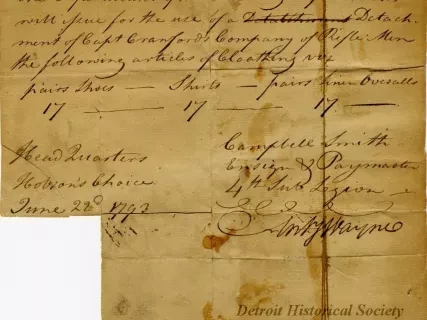 will issue for the use of a Detatchment Detach
ment of Capt Cranfords Company of Rifle Men
the following articles of Cloathing viz
pairs Shoes — Shirts — pairs linen Overalls
17 — 17 — 17 —
Campbell Smith
Head Quarters
Ensign & Paymaster
Hobson's Choice
4th Sub Legion
June 22d 1793
Anty Wayne
Detroit Historical Society